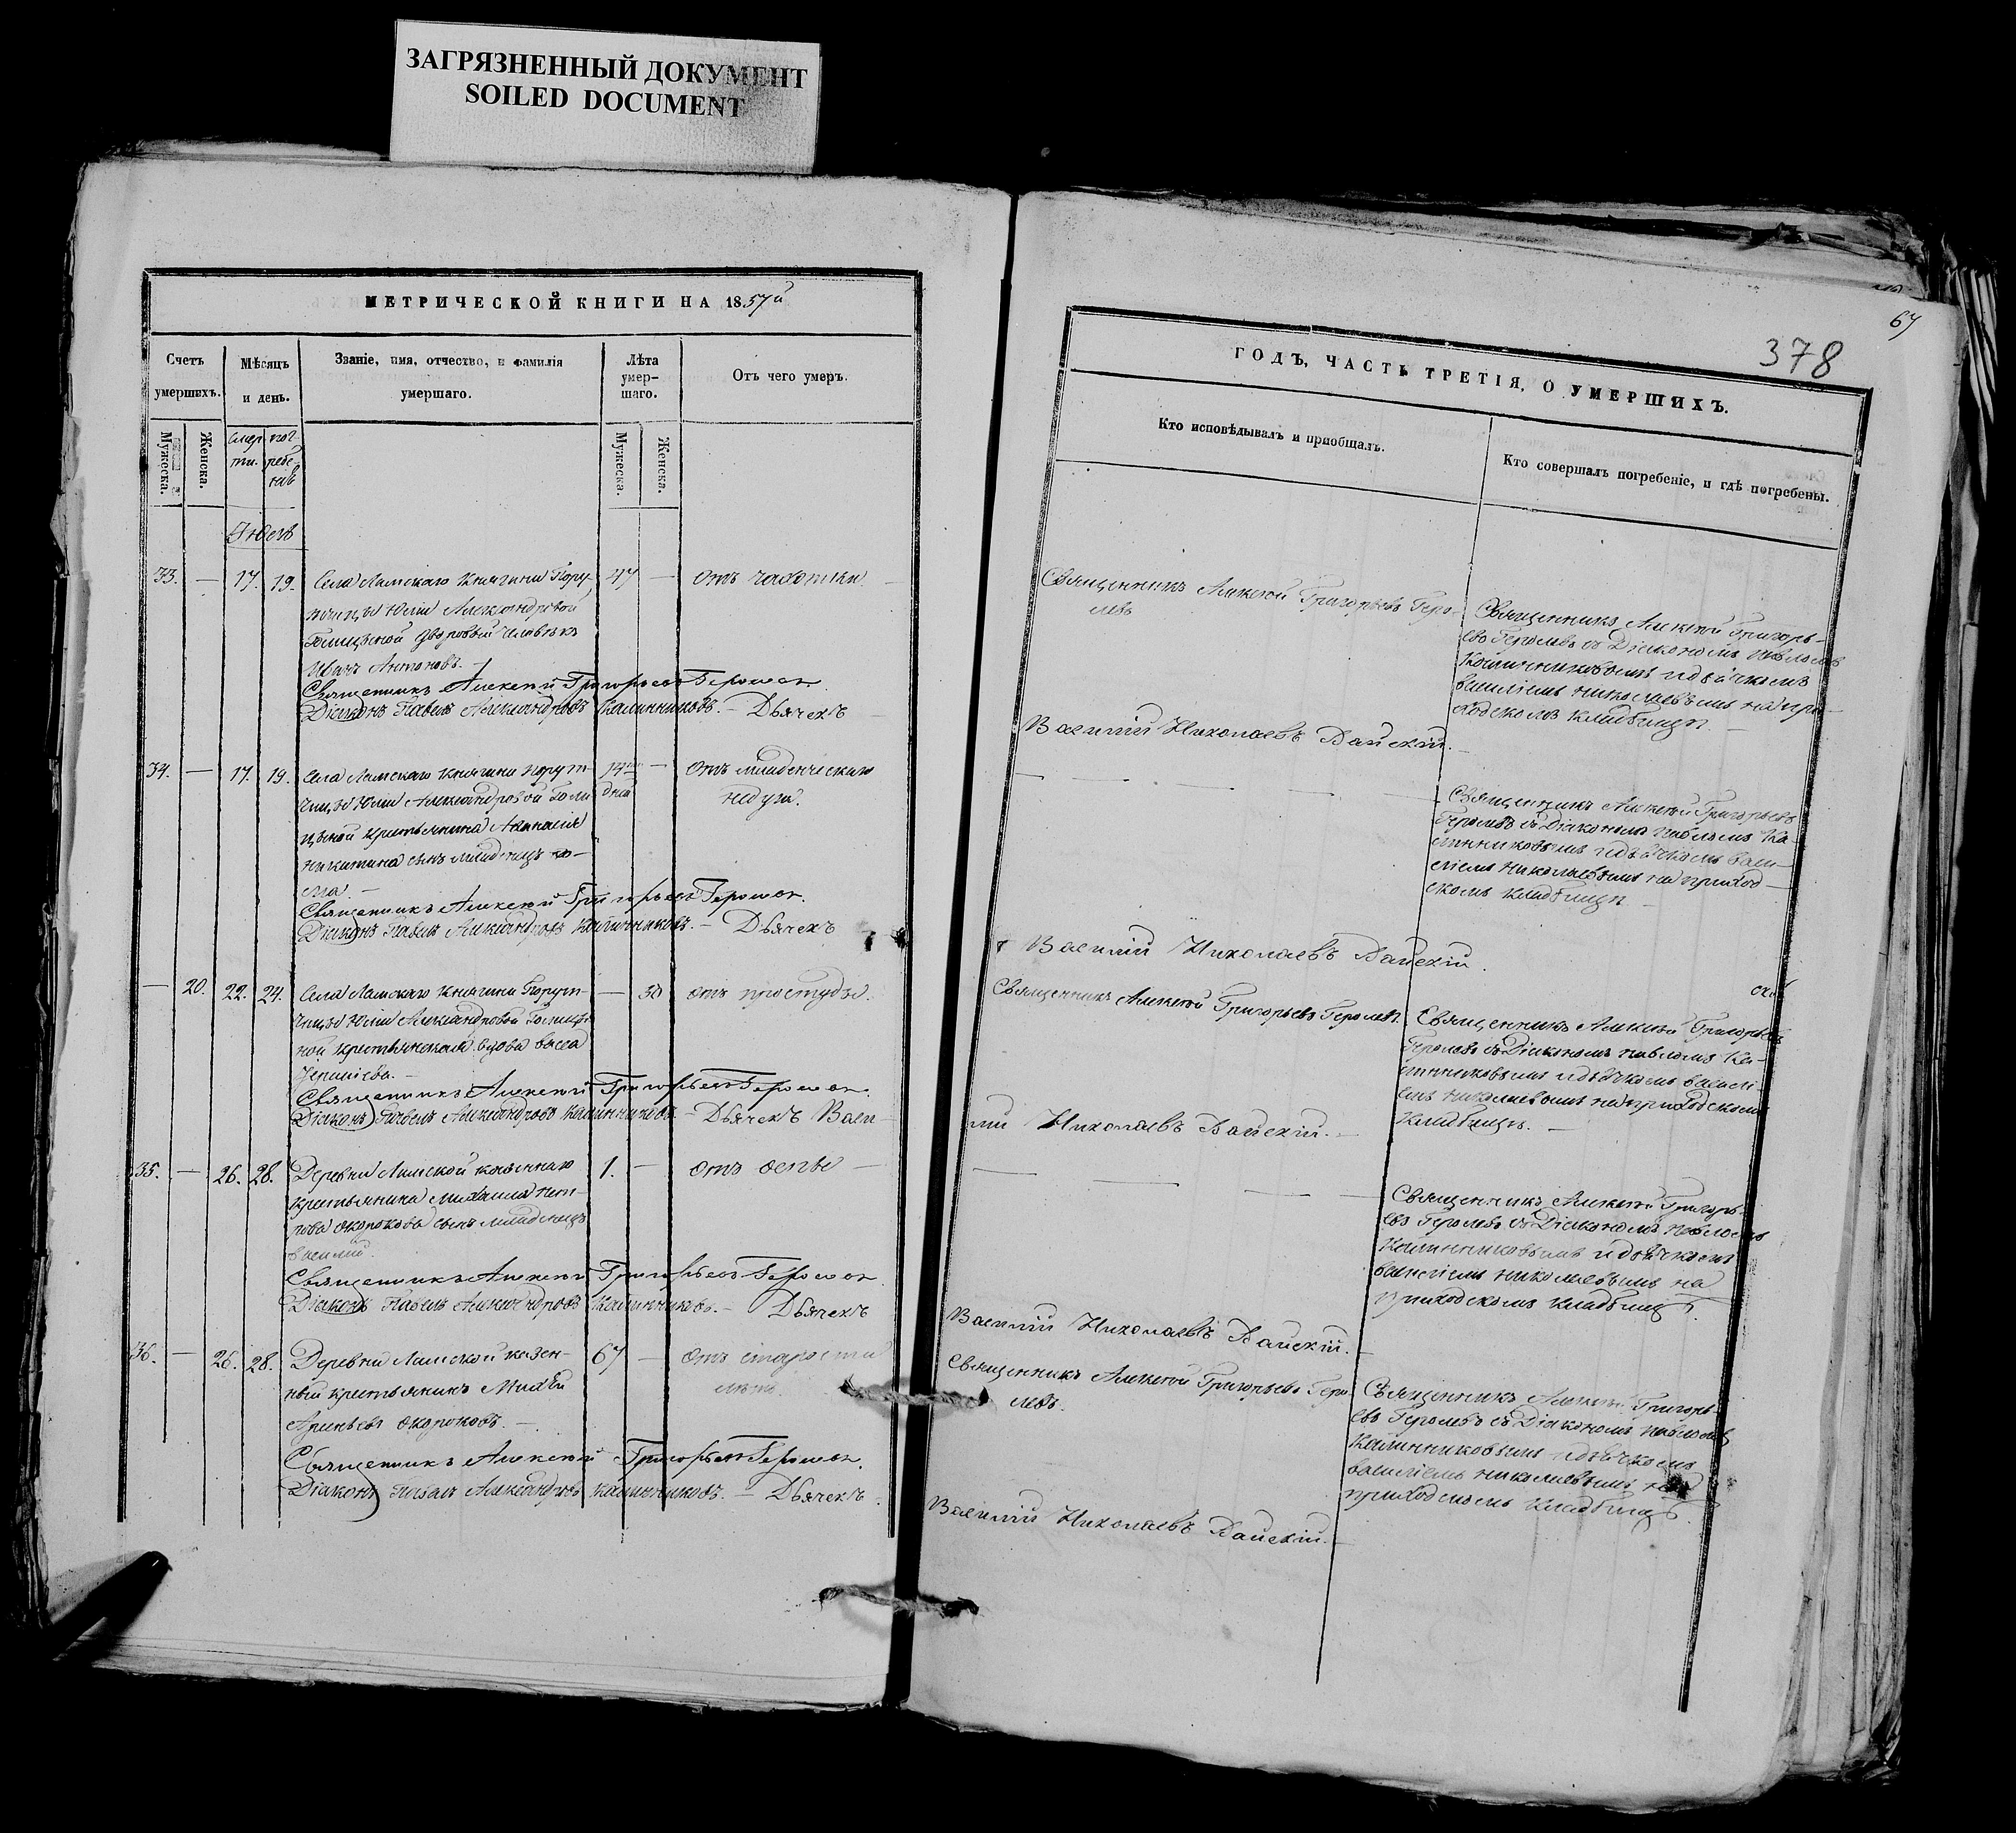 ЗАГРЯЗНЕННЫЙ ДОКУМЕНТ
SOILED DOCUMENT
МЕТРИЧЕСКОЙ КНИГИ НА 1857й
Счетъ умершихъ.
Мужеска.
Женска.
Мѣсяцъ и день.
смерти.
погребенія
Званіе, имя, отчество, и фамилія
умершаго.
Лѣта умер-
шаго.
Мужеска.
Женска.
Отъ чего умеръ.
33. — 17. 19. Села Ламскаго Княгини Пору- 47 — отъ чахотки
чицы Юліи Александровой
Голицыной дворовый человѣкъ
Иванъ Антоновъ. —
Священникъ Алексѣй Григорьевъ
Діаконъ Павелъ Александровъ Калинниковъ. — Дьячекъ
34. — 17. 19. Села Ламскаго Княгини Порут- 14 дней — отъ младенческаго
чицы Юліи Александровой Голи- недуга.
цыной крестьянина Аѳанасія
Никитина сынъ младенецъ
Священникъ Алексѣй Григорьевъ
Діаконъ Павелъ Александровъ Калинниковъ. — Дьячекъ
— 20. 22. 24. Села Ламскаго Княгини Порут- — 30 отъ простуды.
чицы Юліи Александровой Голицы-
ной крестьянская вдова
Священникъ Алексѣй Григорьевъ
Діаконъ Павелъ Александровъ Калинниковъ — Дьячекъ Васи-
35. — 26. 28. Деревни Ламской казеннаго 1. — отъ оспы —
крестьянина Михаила Пет-
рова Окорокова сынъ младенецъ
Василій.
Священникъ Алексѣй Григорьевъ
Діаконъ Павелъ Александровъ Калинниковъ. — Дьячекъ
36. — 26. 28. Деревни Ламской казен- 67 — отъ старости
ный крестьянинъ Михѣй лѣтъ.
Окороковъ. —
Священникъ Алексѣй Григорьевъ
Діаконъ Павелъ Александровъ Калинниковъ. — Дьячекъ
67
378
ГОДЪ, ЧАСТЬ ТРЕТІЯ, О УМЕРШИХЪ.
Кто исповѣдывалъ и пріобщалъ.
Кто совершалъ погребеніе, и гдѣ погребены.
Священникъ Алексѣй Григорьевъ
Священникъ Алексѣй Григорь-
евъ съ Діакономъ Павломъ
Калинниковымъ и дьячкомъ
Василіемъ Николаевымъ на при-
ходскомъ кладбищѣ. —
Василій Николаевъ Райскій. —
Священникъ Алексѣй Григорьевъ
съ Діакономъ Павломъ Ка-
линниковымъ и дьячкомъ Васи-
ліемъ Николаевымъ на приход-
скомъ кладбищѣ —
Василій Николаевъ Райскій.
Священникъ Алексѣй Григорьевъ
Священникъ Алексѣй Григорьевъ
съ Діакономъ Павломъ Ка-
линниковымъ и дьячкомъ Васілі-
емъ Николаевымъ на приходскомъ
кладбищѣ. —
лій Николаевъ Райскій. —
Священникъ Алексѣй Григорь-
евъ съ Діакономъ Павломъ
Калинниковымъ и дьячкомъ
Василіемъ Николаевымъ на
приходскомъ кладбищѣ.
Василій Николаевъ Райскій. —
Священникъ Алексѣй Григорьевъ
Священникъ Алексѣй Григорь-
евъ съ Діакономъ Павломъ
Калинниковымъ и дьячкомъ
Василіемъ Николаевымъ на
приходскомъ кладбищѣ.
Василій Николаевъ Райскій. —